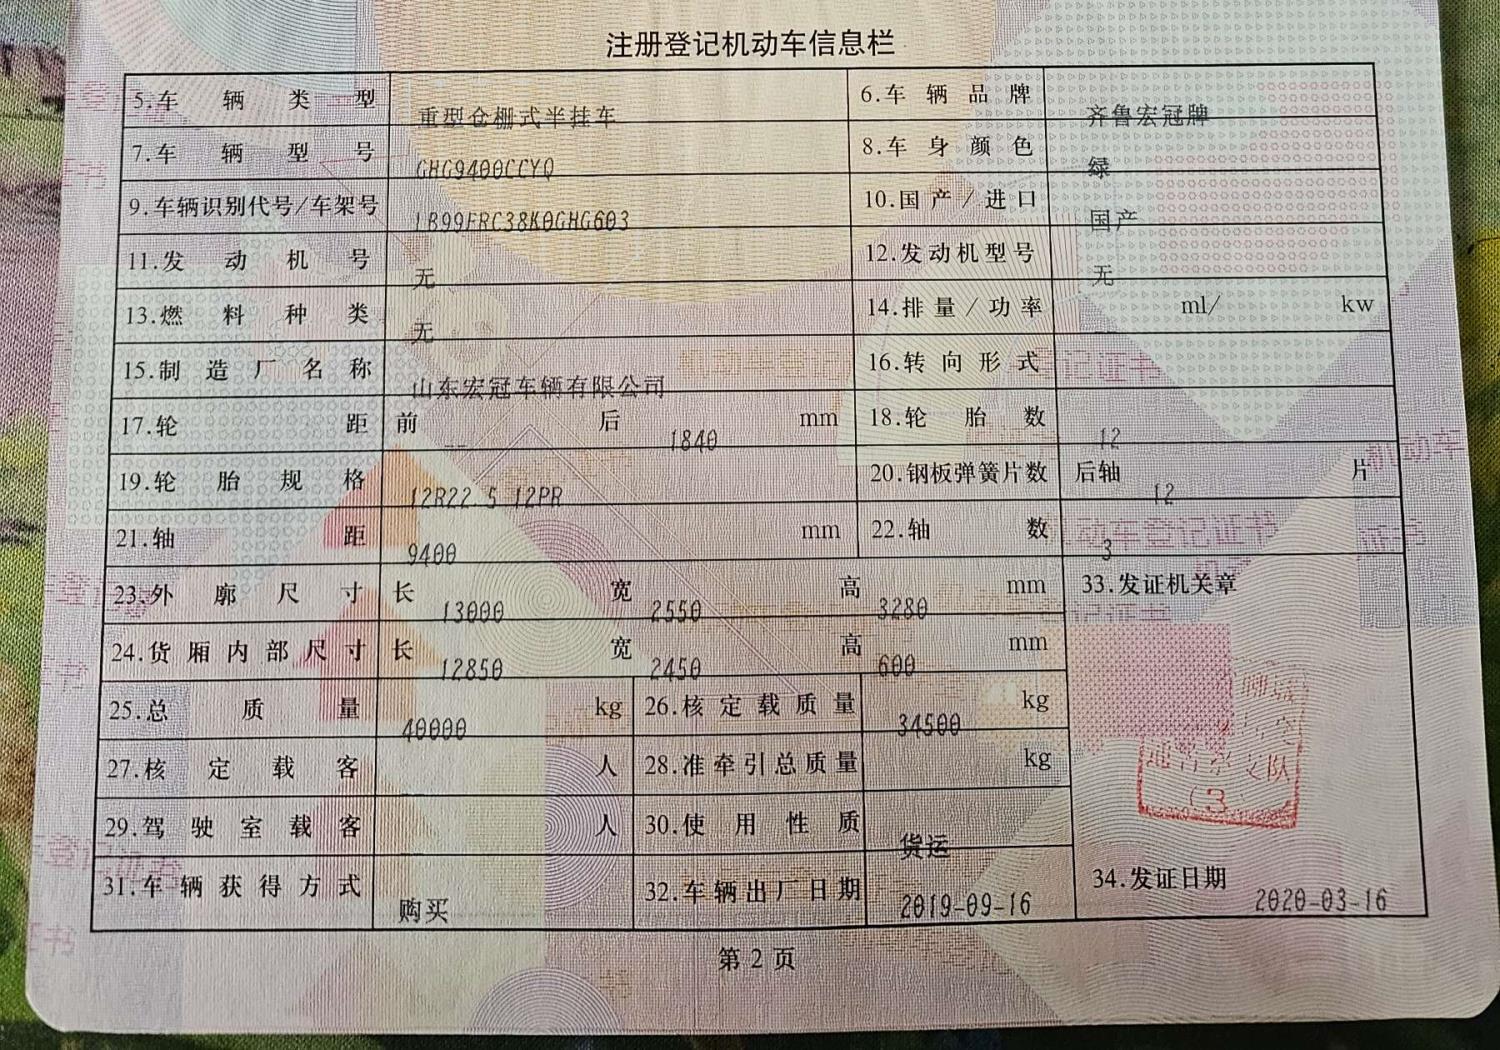 注册登记机动车信息栏
5.车辆类型 重型仓栅式半挂车 6.车辆品牌 齐鲁宏冠牌
7.车辆型号 GHG9400CCYQ 8.车身颜色 绿
9.车辆识别代号/车架号 LB99FRC38K0GHG603 10.国产/进口 国产
11.发动机号 无 12.发动机型号 无
13.燃料种类 无 14.排量/功率 ml/ kw
15.制造厂名称 山东宏冠车辆有限公司 16.转向形式
17.轮距 前 -- 后 1840 mm 18.轮胎数 12
19.轮胎规格 12R22.5 12PR 20.钢板弹簧片数 后轴 12 片
21.轴距 9400 mm 22.轴数 3
23.外廓尺寸 长 13000 宽 2550 高 3280 mm 33.发证机关章
24.货厢内部尺寸 长 12850 宽 2450 高 600 mm
25.总质量 40000 kg 26.核定载质量 34500 kg
27.核定载客 人 28.准牵引总质量 kg
29.驾驶室载客 人 30.使用性质 货运
31.车辆获得方式 购买 32.车辆出厂日期 2019-09-16 34.发证日期 2020-03-16
(3)
第 2 页